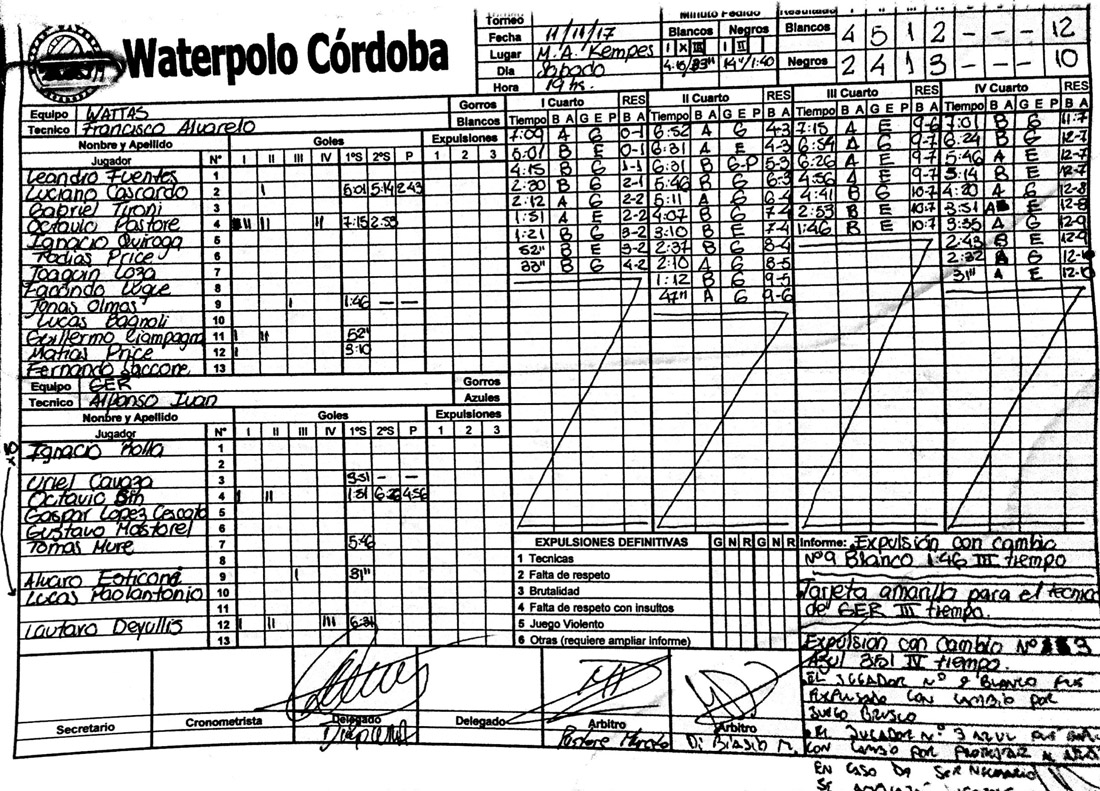 Waterpolo Córdoba
Torneo
Fecha 11/11/17
Lugar M.A. Kempes
Dia Sabado
Hora 19 hs.
Minuto Pedido
Blancos Negros
I X III I II
4:15/33" 14"/1:40
Resultado I II III IV
Blancos 4 5 1 2 - - - 12
Negros 2 4 1 3 - - - 10
Equipo WATTAS Gorros
Tecnico Francisco Alvarelo Blancos
Nombre y Apellido Goles Expulsiones
Jugador Nº I II III IV 1ºS 2ºS P 1 2 3
Leandro Fuentes 1
Luciano Cascardo 2 I 5:01 5:14 2:43
Gabriel Tironi 3
Octavio Pastore 4 II II II 7:15 2:53
Ignacio Quiroga 5
Tadias Price 6
Joaquin Loza 7
Facundo Luque 8
Jonas Olmos 9 I 1:46 - -
Lucas Bagnoli 10
Guillermo Ciampagna 11 I II 52"
Matias Price 12 I 3:10
Fernando Saccone 13
Equipo GER Gorros
Tecnico Alfonso Juan Azules
Nombre y Apellido Goles Expulsiones
Jugador Nº I II III IV 1ºS 2ºS P 1 2 3
Ignacio Rolla 1
2
Uriel Cavaza 3 3:51 - -
Octavio 4 I II 1:31 6:26 4:56
Gaspar Lopez 5
Gustavo Mastorel 6
Tomas Mure 7 5:46
8
Alvaro 9 I 31"
Lucas Paolantonio 10
11
Lautaro Deyullis 12 I II III 6:31
13
I Cuarto RES
Tiempo B A G E P B A
7:09 A G 0-1
5:01 B E 0-1
4:15 B G 1-1
2:30 B G 2-1
2:12 A G 2-2
1:31 A E 2-2
1:21 B G 3-2
52" B E 3-2
33" B G 4-2
II Cuarto RES
Tiempo B A G E P B A
6:52 A G 4-3
6:31 A E 4-3
6:31 B G-P 5-3
5:46 B G 6-3
5:11 A G 6-4
4:07 B G 7-4
3:10 B E 7-4
2:37 B G 8-4
2:10 A G 8-5
1:12 B G 9-5
47" A G 9-6
III Cuarto RES
Tiempo B A G E P B A
7:15 A E 9-6
6:54 A G 9-7
6:26 A E 9-7
4:56 A E 9-7
4:41 B G 10-7
2:53 B E 10-7
1:46 B E 10-7
IV Cuarto RES
Tiempo B A G E P B A
7:01 B G 11-7
6:24 B G 12-7
5:46 A E 12-7
5:14 B E 12-7
4:20 A G 12-8
3:51 A E 12-8
3:35 A G 12-9
2:43 B E 12-9
2:32 A G 12-10
31" A E 12-10
EXPULSIONES DEFINITIVAS G N R G N R
1 Tecnicas
2 Falta de respeto
3 Brutalidad
4 Falta de respeto con insultos
5 Juego Violento
6 Otras (requiere ampliar informe)
Informe: Expulsión con cambio
Nº9 Blanco 1:46 III tiempo
Tarjeta amarilla para el tecnico
de GER III tiempo.
Expulsión con cambio Nº 3
Azul 3:51 IV tiempo.
EL JUGADOR Nº 9 BLANCO FUE
EXPULSADO CON CAMBIO POR
JUEGO BRUSCO
EL JUGADOR Nº 3 AZUL FUE
CON CAMBIO POR PROTESTAR
EN CASO DE SER NECESARIO
SE
Secretario
Cronometrista
Delegado
Delegado
Arbitro
Pastore Marcelo
Arbitro
Di Biasio M.